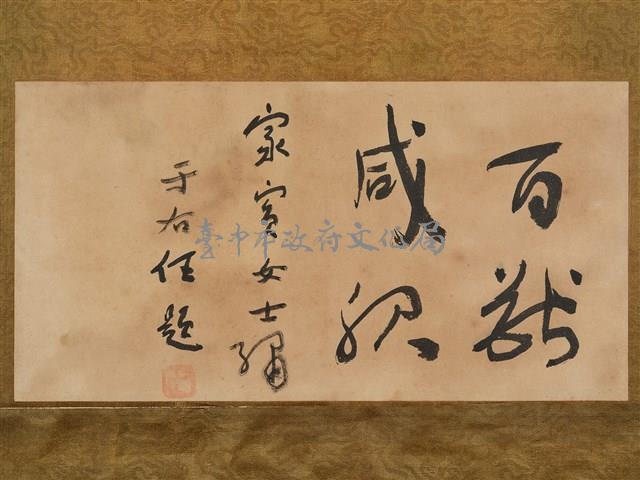 百獸
咸服
家賓女士繡
于右任題
臺中市政府文化局